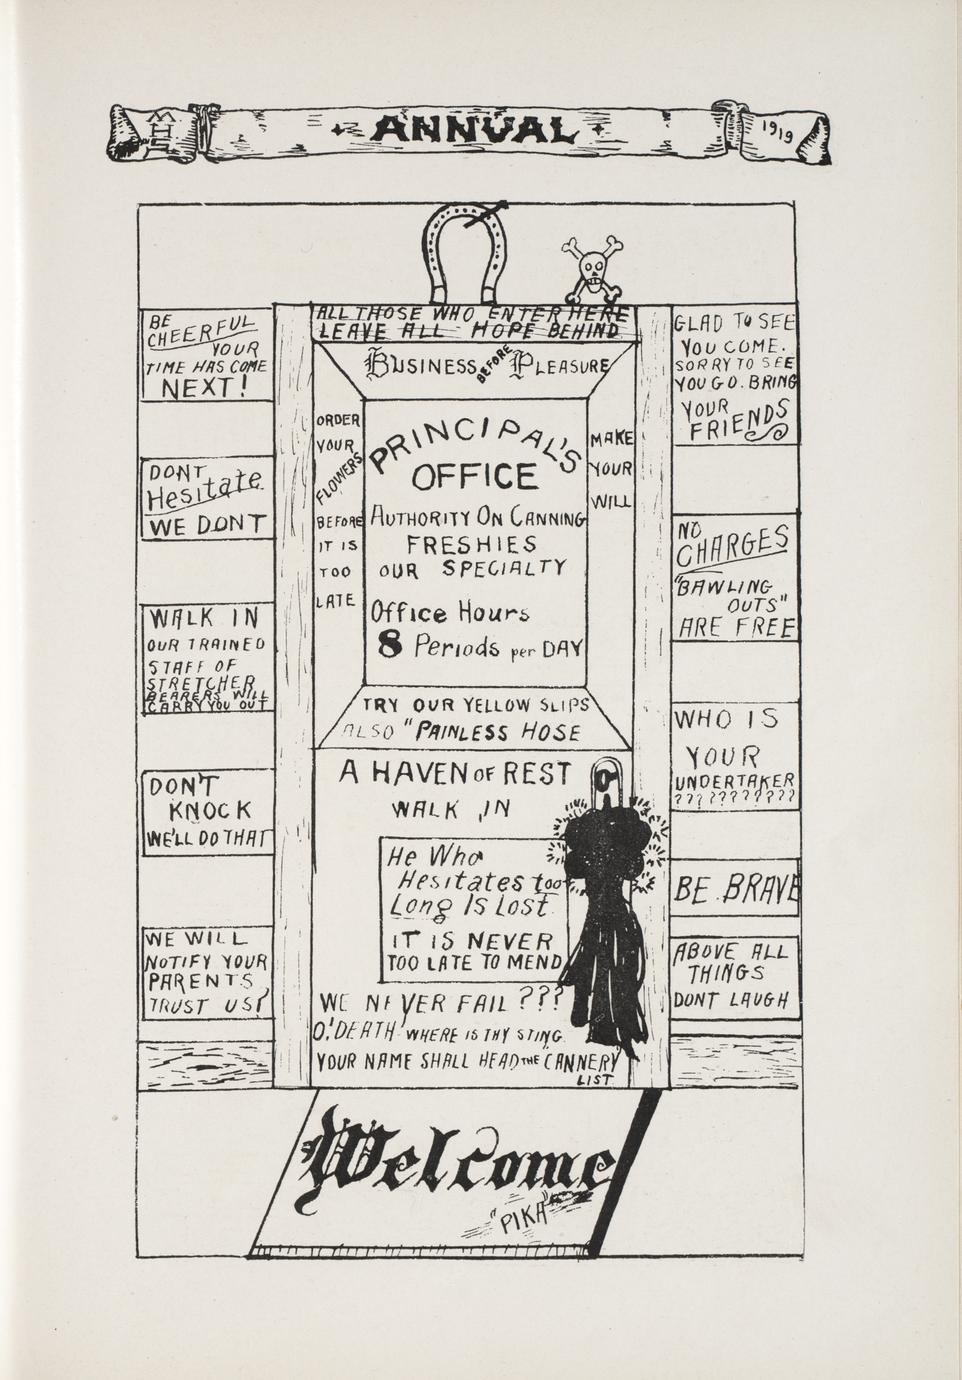 MHS
ANNUAL
1919
ALL THOSE WHO ENTER HERE
LEAVE ALL HOPE BEHIND
BUSINESS BEFORE PLEASURE
BE
CHEERFUL
YOUR
TIME HAS COME
NEXT!
DONT
Hesitate
WE DONT
WALK IN
OUR TRAINED
STAFF OF
STRETCHER
BEARERS WILL
CARRY YOU OUT
DON'T
KNOCK
WE'LL DO THAT
WE WILL
NOTIFY YOUR
PARENTS
TRUST US!
ORDER
YOUR
FLOWERS
BEFORE
IT IS
TOO
LATE
PRINCIPAL'S
OFFICE
AUTHORITY ON CANNING
FRESHIES
OUR SPECIALTY
Office Hours
8 Periods per DAY
MAKE
YOUR
WILL
TRY OUR YELLOW SLIPS
ALSO "PAINLESS HOSE
A HAVEN OF REST
WALK IN
He Who
Hesitates too
Long Is Lost
IT IS NEVER
TOO LATE TO MEND
WE NEVER FAIL ???
O! DEATH WHERE IS THY STING
YOUR NAME SHALL HEAD THE CANNERY
LIST
GLAD TO SEE
YOU COME.
SORRY TO SEE
YOU GO. BRING
YOUR
FRIENDS
NO
CHARGES
"BAWLING
OUTS"
ARE FREE
WHO IS
YOUR
UNDERTAKER
????????????
BE BRAVE
ABOVE ALL
THINGS
DONT LAUGH
Welcome
"PIKA"